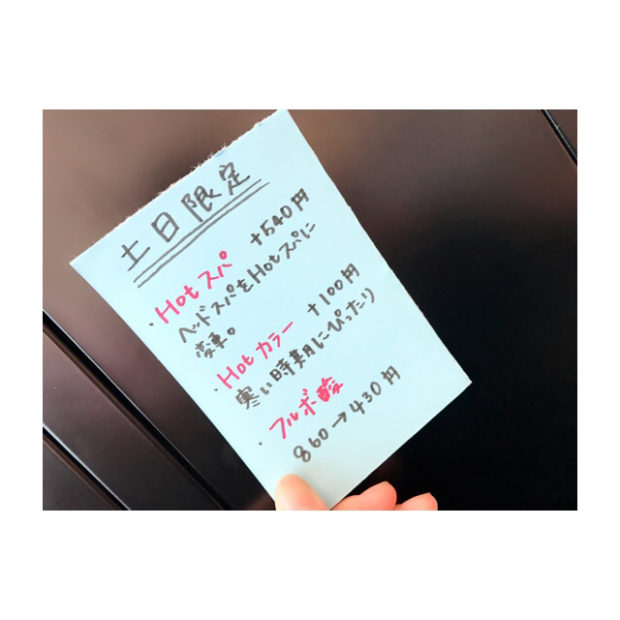 土日限定
・Hotスパ +540円
ヘッドスパをHotスパに
変更。
・Hotカラー +100円
寒い時期にぴったり
・フルボ酸
860→430円